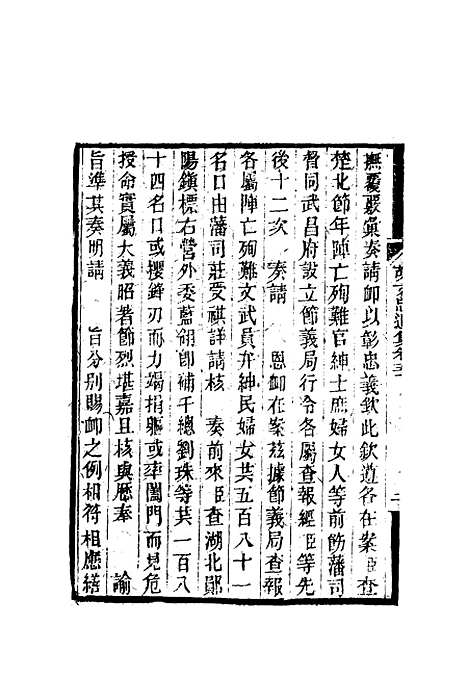 撫覆覈彙奏請卹以彰忠義欽此欽遵各在案臣查
楚北節年陣亡殉難官紳士庶婦女人等前飭藩司
督同武昌府設立節義局行令各屬查報經臣等先
後十二次 奏請 恩卹在案茲據節義局查報
各屬陣亡殉難文武員弁紳民婦女共五百八十一
名口由藩司莊受祺詳請核 奏前來臣查湖北鄖
陽鎮標右營外委藍翎卽補千總劉珠等共一百八
十四名口或攖鋒刃而力竭捐軀或率闔門而見危
授命實屬大義昭著節烈堪嘉且核與歷奉 諭
旨準其奏明請 旨分別賜卹之例相符相應繕